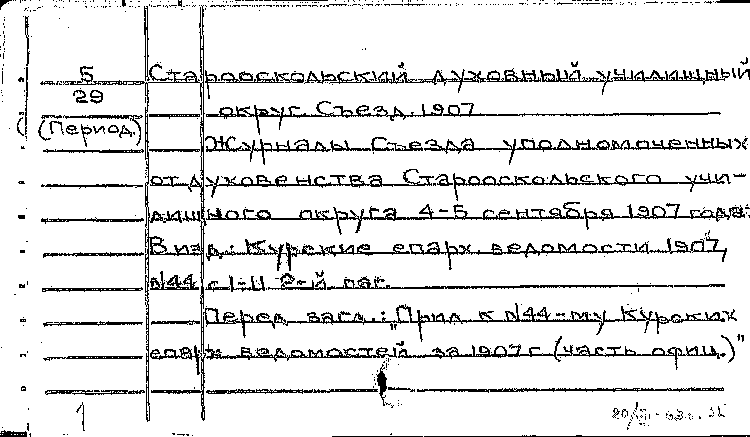 5
29
(Период.)
Старооскольский духовный училищный
округ. Съезд. 1907
Журналы Съезда уполномоченных
от духовенства Старооскольского учи-
лищного округа 4-5 сентября 1907 года:
В изд.: Курские епарх. ведомости 1907,
№44 с 1-11 2-й паг.
Перед загл.: „Прил к №44-му Курских
епарх ведомостей за 1907 г (часть офиц.)"
1